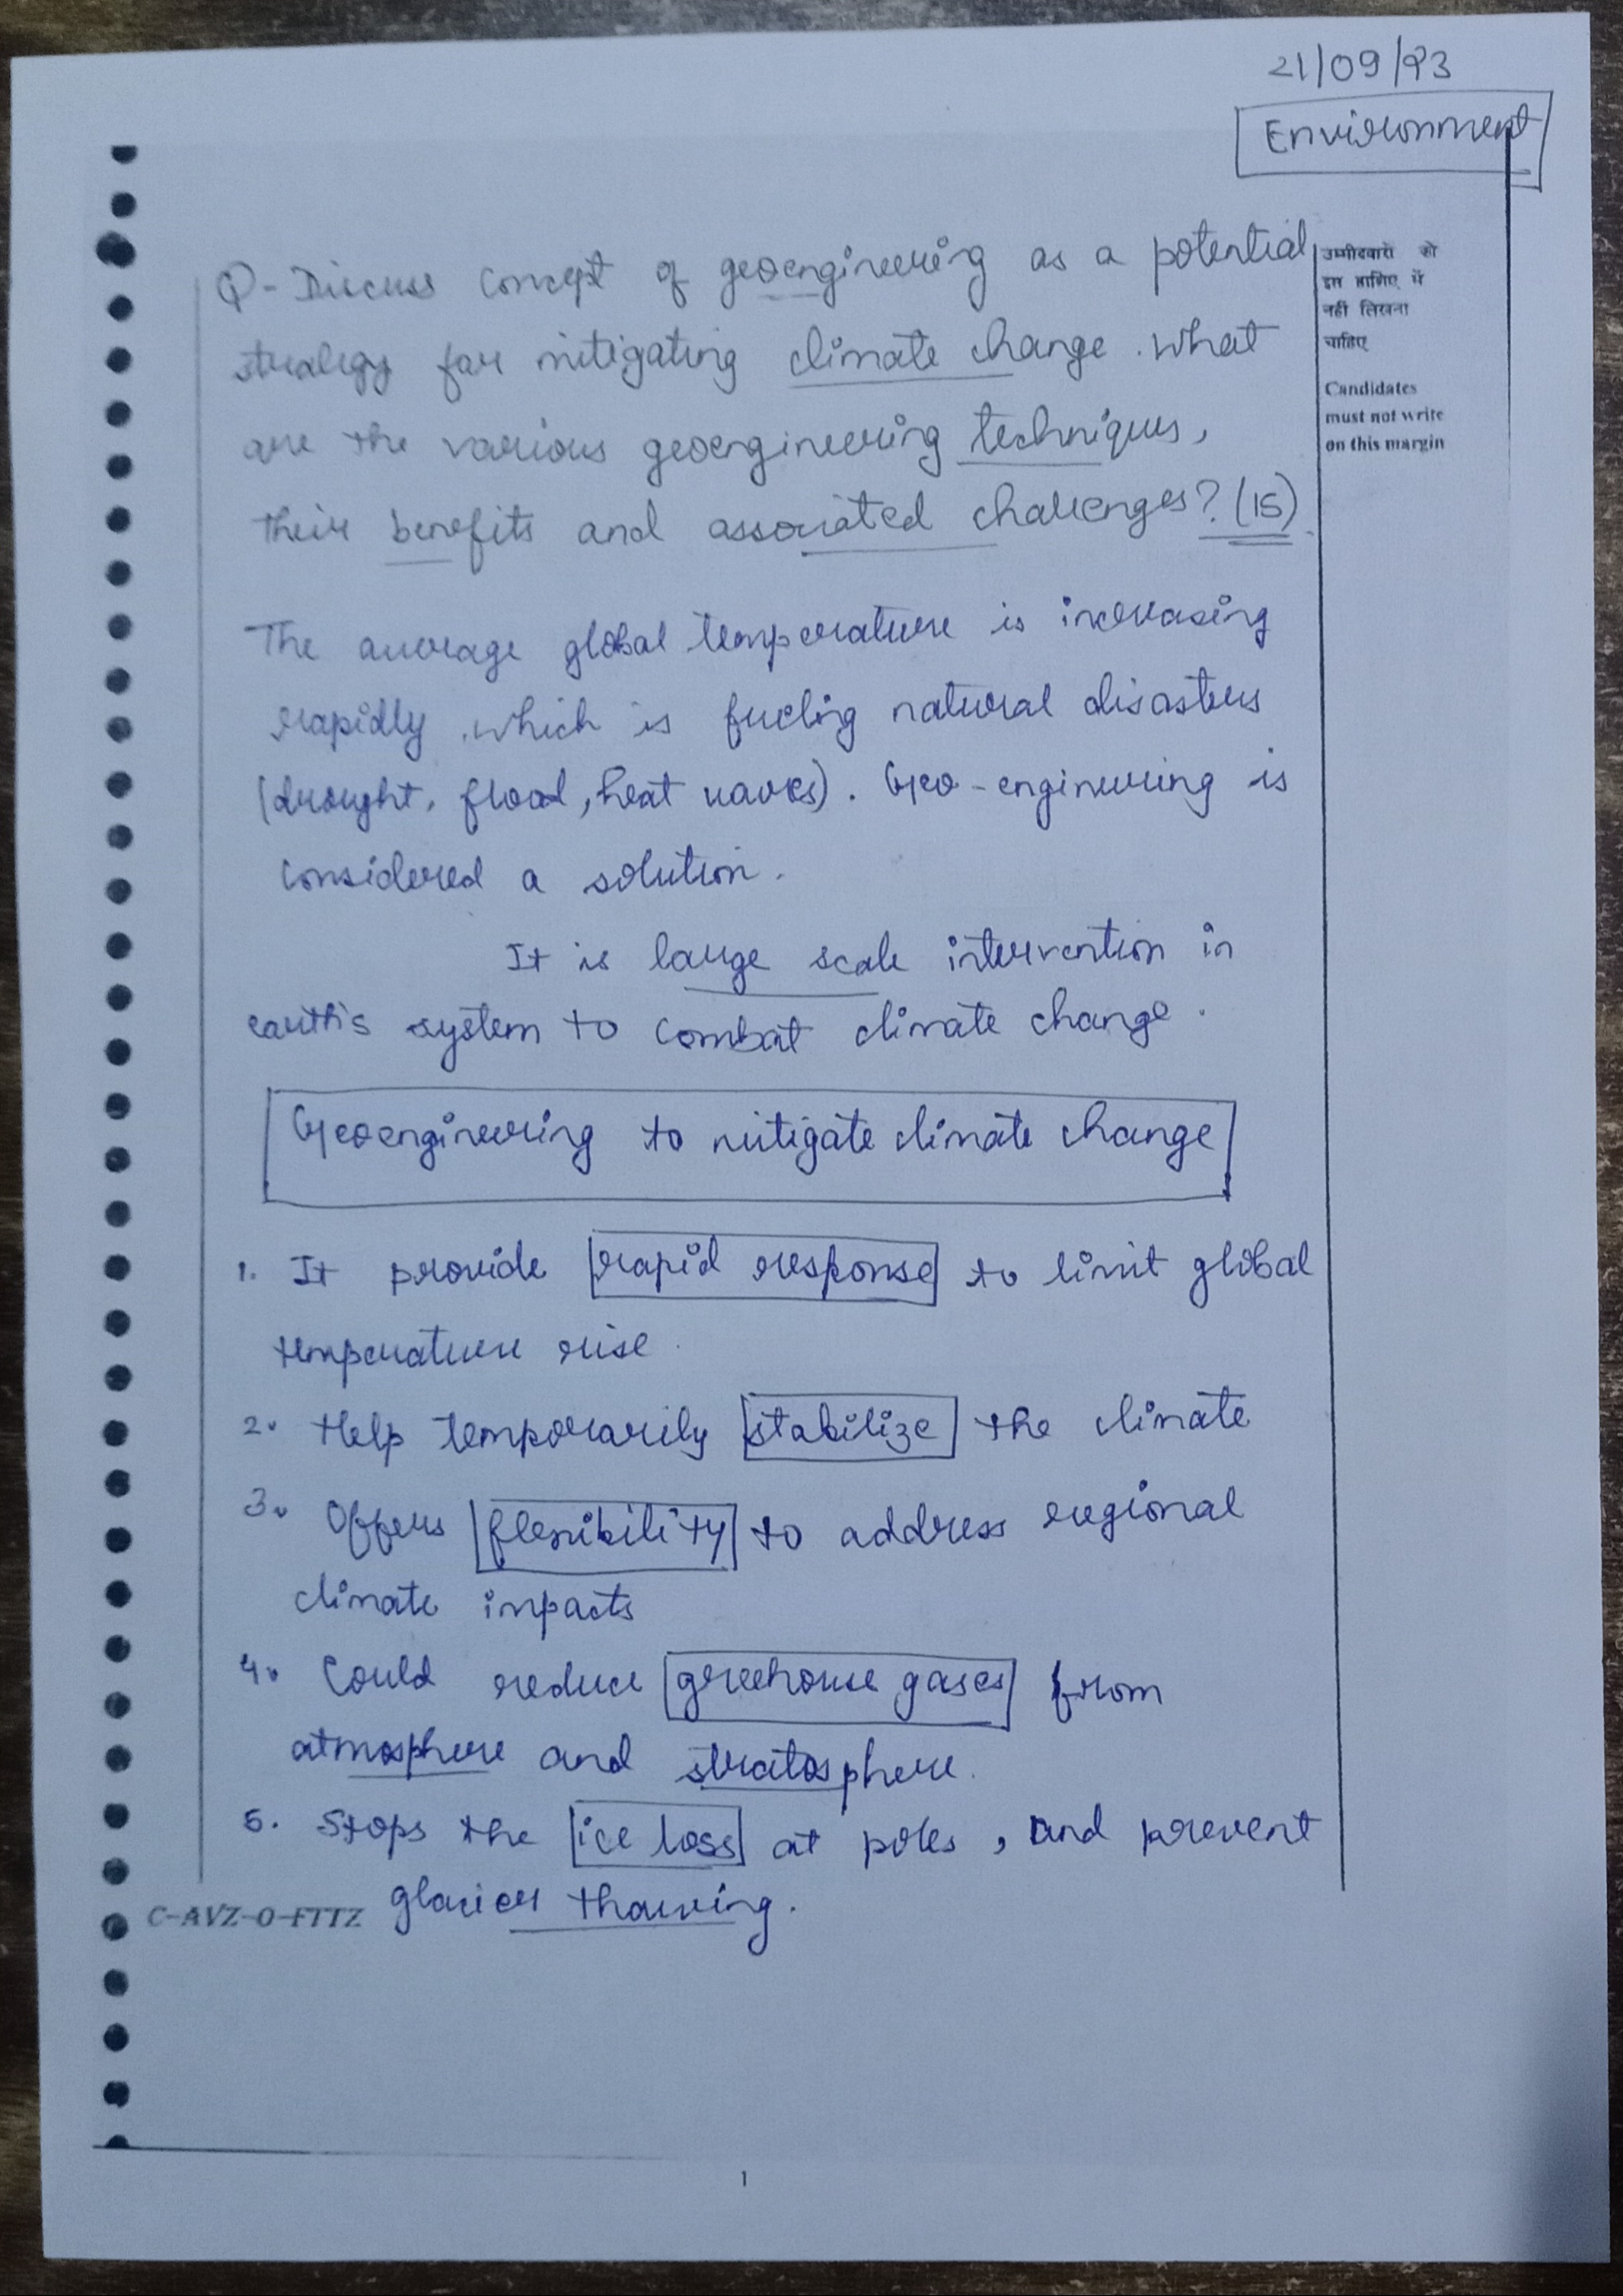 21/09/23
Environment
Q- Discuss concept of geoengineering as a potential
strategy for mitigating climate change. What
are the various geoengineering techniques,
their benefits and associated challenges? (15)
उम्मीदवारों को
इस हाशिए में
नहीं लिखना
चाहिए
Candidates
must not write
on this margin
The average global temperature is increasing
rapidly, which is fueling natural disasters
(drought, flood, heat waves). Geo-engineering is
considered a solution.
It is large scale intervention in
earth's system to combat climate change.
Geoengineering to mitigate climate change
1. It provide rapid response to limit global
temperature rise.
2. Help temporarily stabilize the climate
3. Offers flexibility to address regional
climate impacts
4. Could reduce greehouse gases from
atmosphere and stratosphere.
5. Stops the ice loss at poles, and prevent
glacier thawing.
C-AVZ-O-FTTZ
1